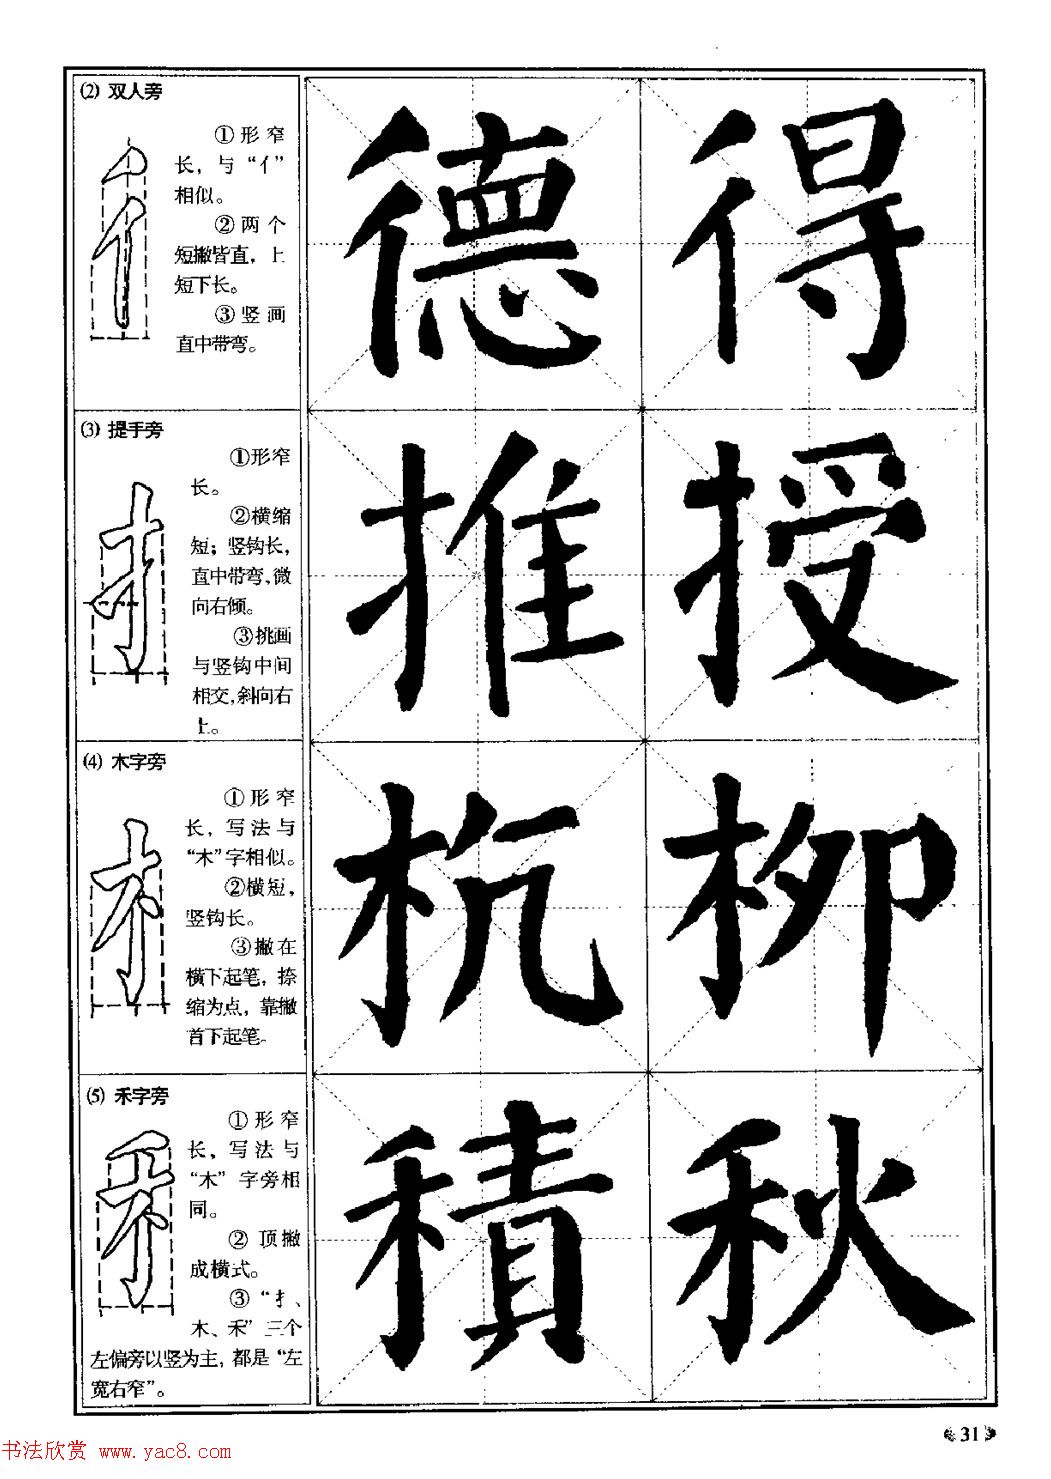 (2) 双人旁
①形窄
长，与“亻”
相似。
②两个
短撇皆直，上
短下长。
③竖画
直中带弯。
德 得
(3) 提手旁
①形窄
长。
②横缩
短；竖钩长，
直中带弯，微
向右倾。
③挑画
与竖钩中间
相交，斜向右
上。
推 授
(4) 木字旁
①形窄
长，写法与
“木”字相似。
②横短，
竖钩长。
③撇在
横下起笔，捺
缩为点，靠撇
首下起笔。
杭 柳
(5) 禾字旁
①形窄
长，写法与
“木”字旁相
同。
②顶撇
成横式。
③“扌、
木、禾”三个
左偏旁以竖为主，都是“左
宽右窄”。
積 秋
31
书法欣赏 www.yac8.com